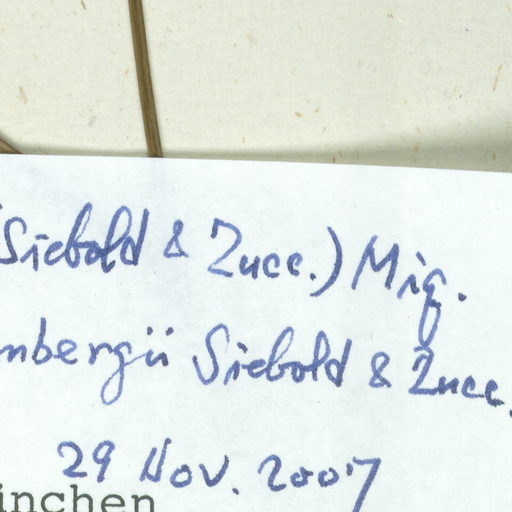 (Siebold & Zucc.) Miq.
nbergii Siebold & Zucc.
29 Nov. 2007
inchen